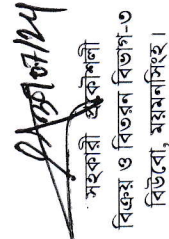 সহকারী প্রকৌশলী
বিক্রয় ও বিতরন বিভাগ-৩
বিউবো, ময়মনসিংহ।